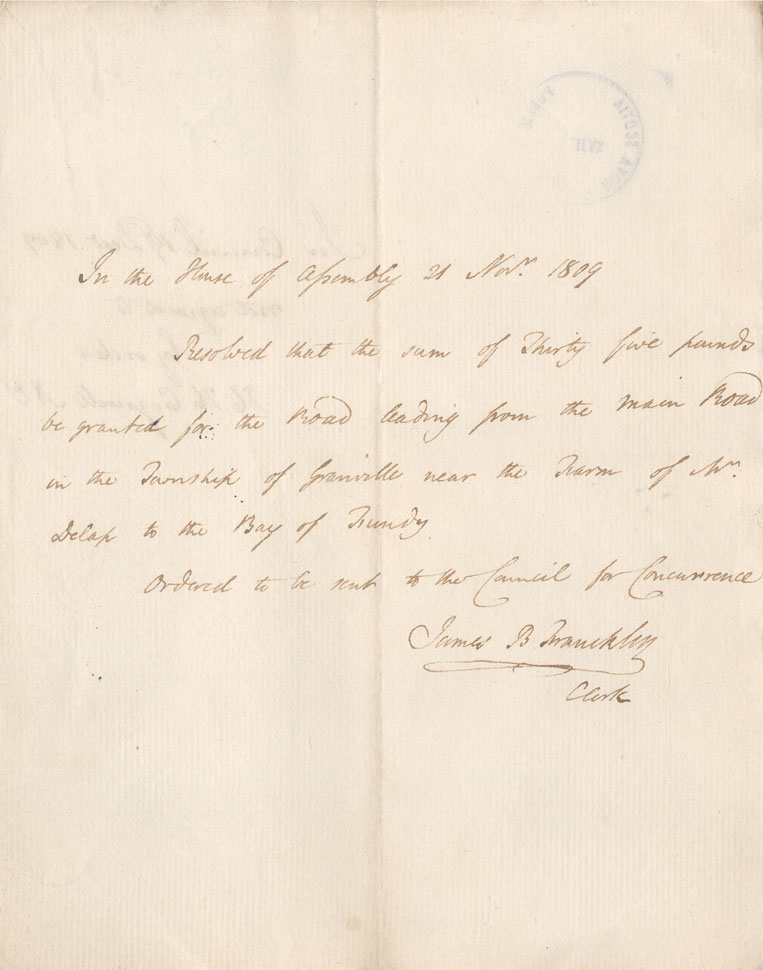 In the House of Assembly 21 Novr. 1809
Resolved that the sum of Thirty five pounds
be granted for the Road leading from the main Road
in the Township of Granville near the Farm of Mr.
Delap to the Bay of Fundy
Ordered to be sent to the Council for Concurrence
James B Franckley
Clerk
NOVA SCOTIA
In Council
not agreed to